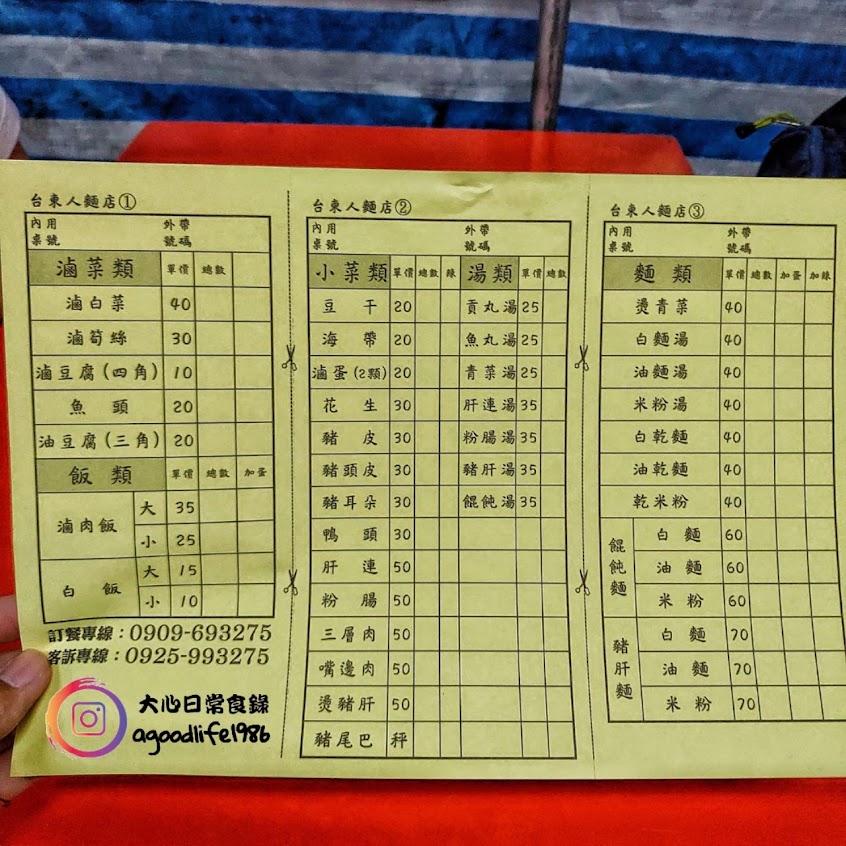 台東人麵店①
內用 外帶
桌號 號碼
滷菜類 單價 總數
滷白菜 40
滷筍絲 30
滷豆腐(四角) 10
魚頭 20
油豆腐(三角) 20
飯類 單價 總數 加蛋
滷肉飯 大 35
小 25
白飯 大 15
小 10
訂餐專線:0909-693275
客訴專線:0925-993275
大心日常食錄
agoodlife1986
台東人麵店②
內用 外帶
桌號 號碼
小菜類 單價 總數 辣 湯類 單價 總數
豆干 20 貢丸湯 25
海帶 20 魚丸湯 25
滷蛋(2顆) 20 青菜湯 25
花生 30 肝連湯 35
豬皮 30 粉腸湯 35
豬頭皮 30 豬肝湯 35
豬耳朵 30 餛飩湯 35
鴨頭 30
肝連 50
粉腸 50
三層肉 50
嘴邊肉 50
燙豬肝 50
豬尾巴 秤
台東人麵店③
內用 外帶
桌號 號碼
麵類 單價 總數 加蛋 加辣
燙青菜 40
白麵湯 40
油麵湯 40
米粉湯 40
白乾麵 40
油乾麵 40
乾米粉 40
餛飩麵 白麵 60
油麵 60
米粉 60
豬肝麵 白麵 70
油麵 70
米粉 70